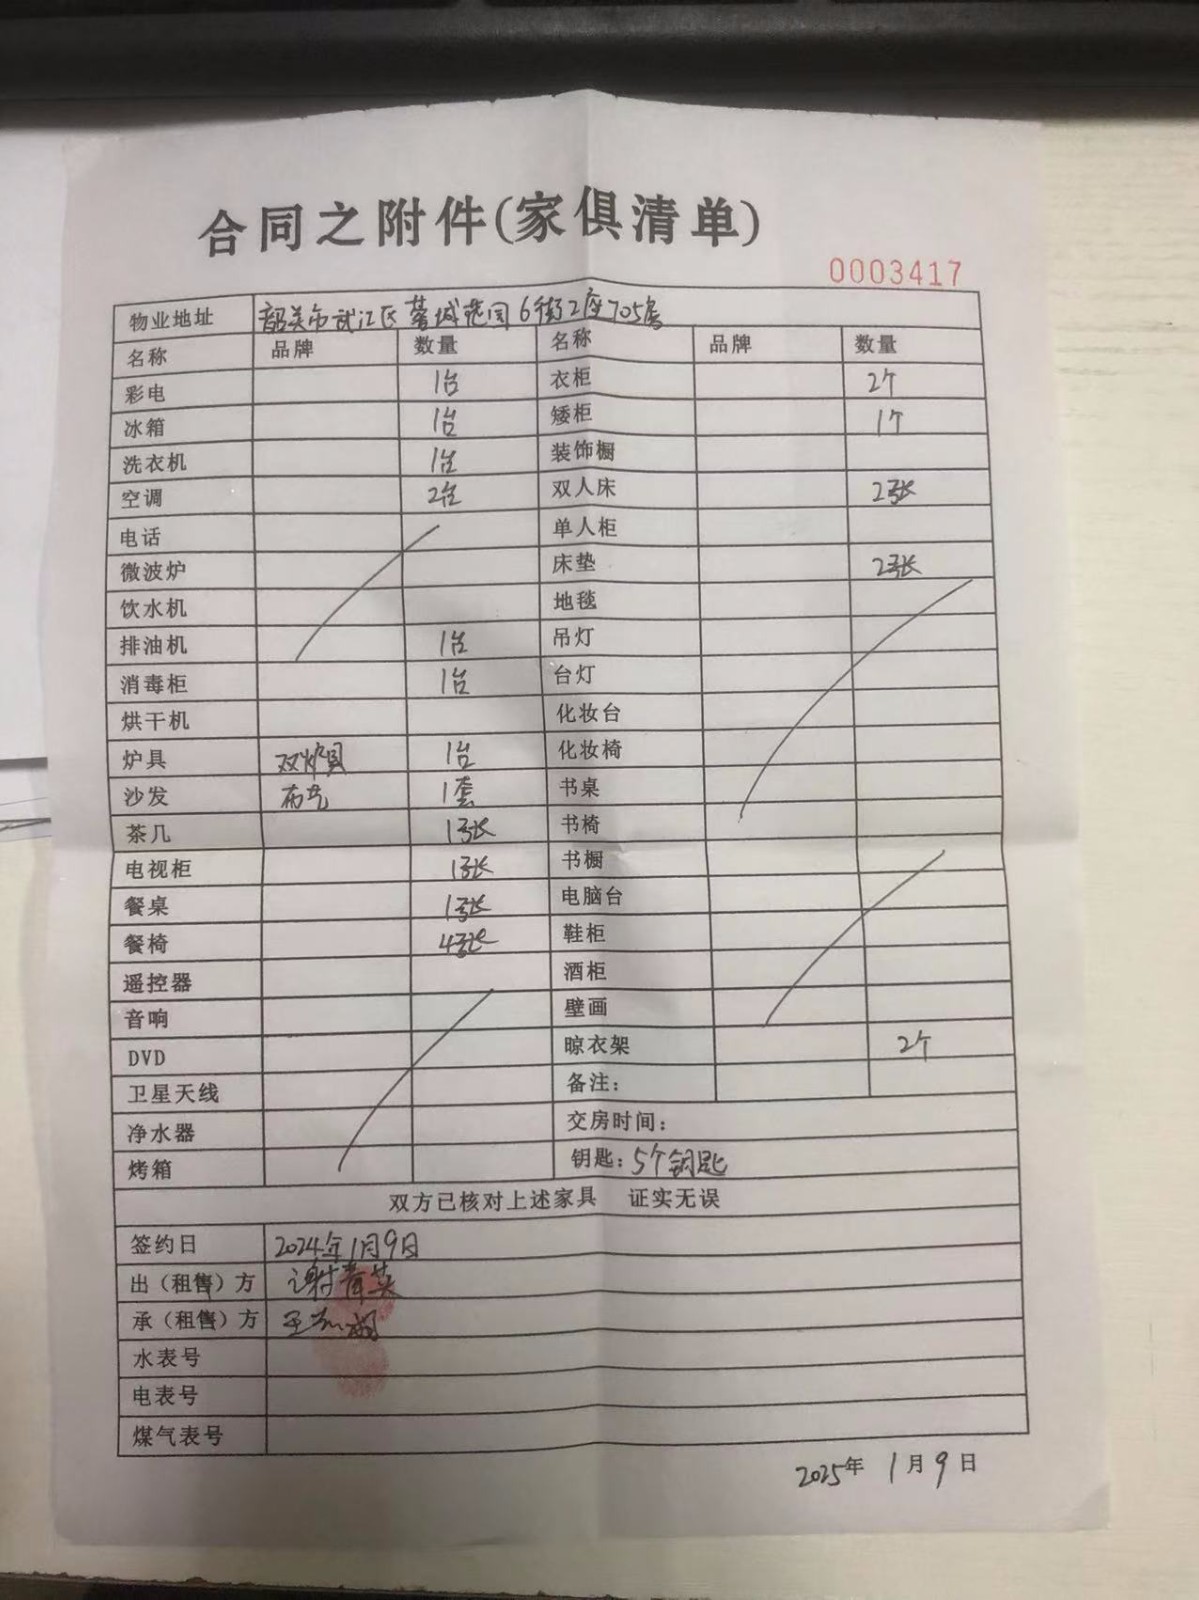 合同之附件(家俱清单)
0003417
物业地址 韶关市武江区 城范园6街2座705房
名称 品牌 数量 名称 品牌 数量
彩电 1台 衣柜 2个
冰箱 1台 矮柜 1个
洗衣机 1台 装饰橱
空调 2台 双人床 2张
电话 单人柜
微波炉 床垫 2张
饮水机 地毯
排油机 1台 吊灯
消毒柜 1台 台灯
烘干机 化妆台
炉具 双炉具 1台 化妆椅
沙发 布艺 1套 书桌
茶几 1张 书椅
电视柜 1张 书橱
餐桌 1张 电脑台
餐椅 4张 鞋柜
遥控器 酒柜
音响 壁画
DVD 晾衣架 2个
卫星天线 备注：
净水器 交房时间：
烤箱 钥匙：5个钥匙
双方已核对上述家具 证实无误
签约日 2024年1月9日
出（租售）方 谢 英
承（租售）方 王
水表号
电表号
煤气表号
2025年 1月9日